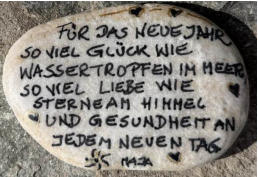 FÜR DAS NEUE JAHR
SO VIEL GLÜCK WIE
WASSERTROPFEN IM MEER
SO VIEL LIEBE WIE
STERNE AM HIMMEL
UND GESUNDHEIT AN
JEDEM NEUEN TAG
MAJA